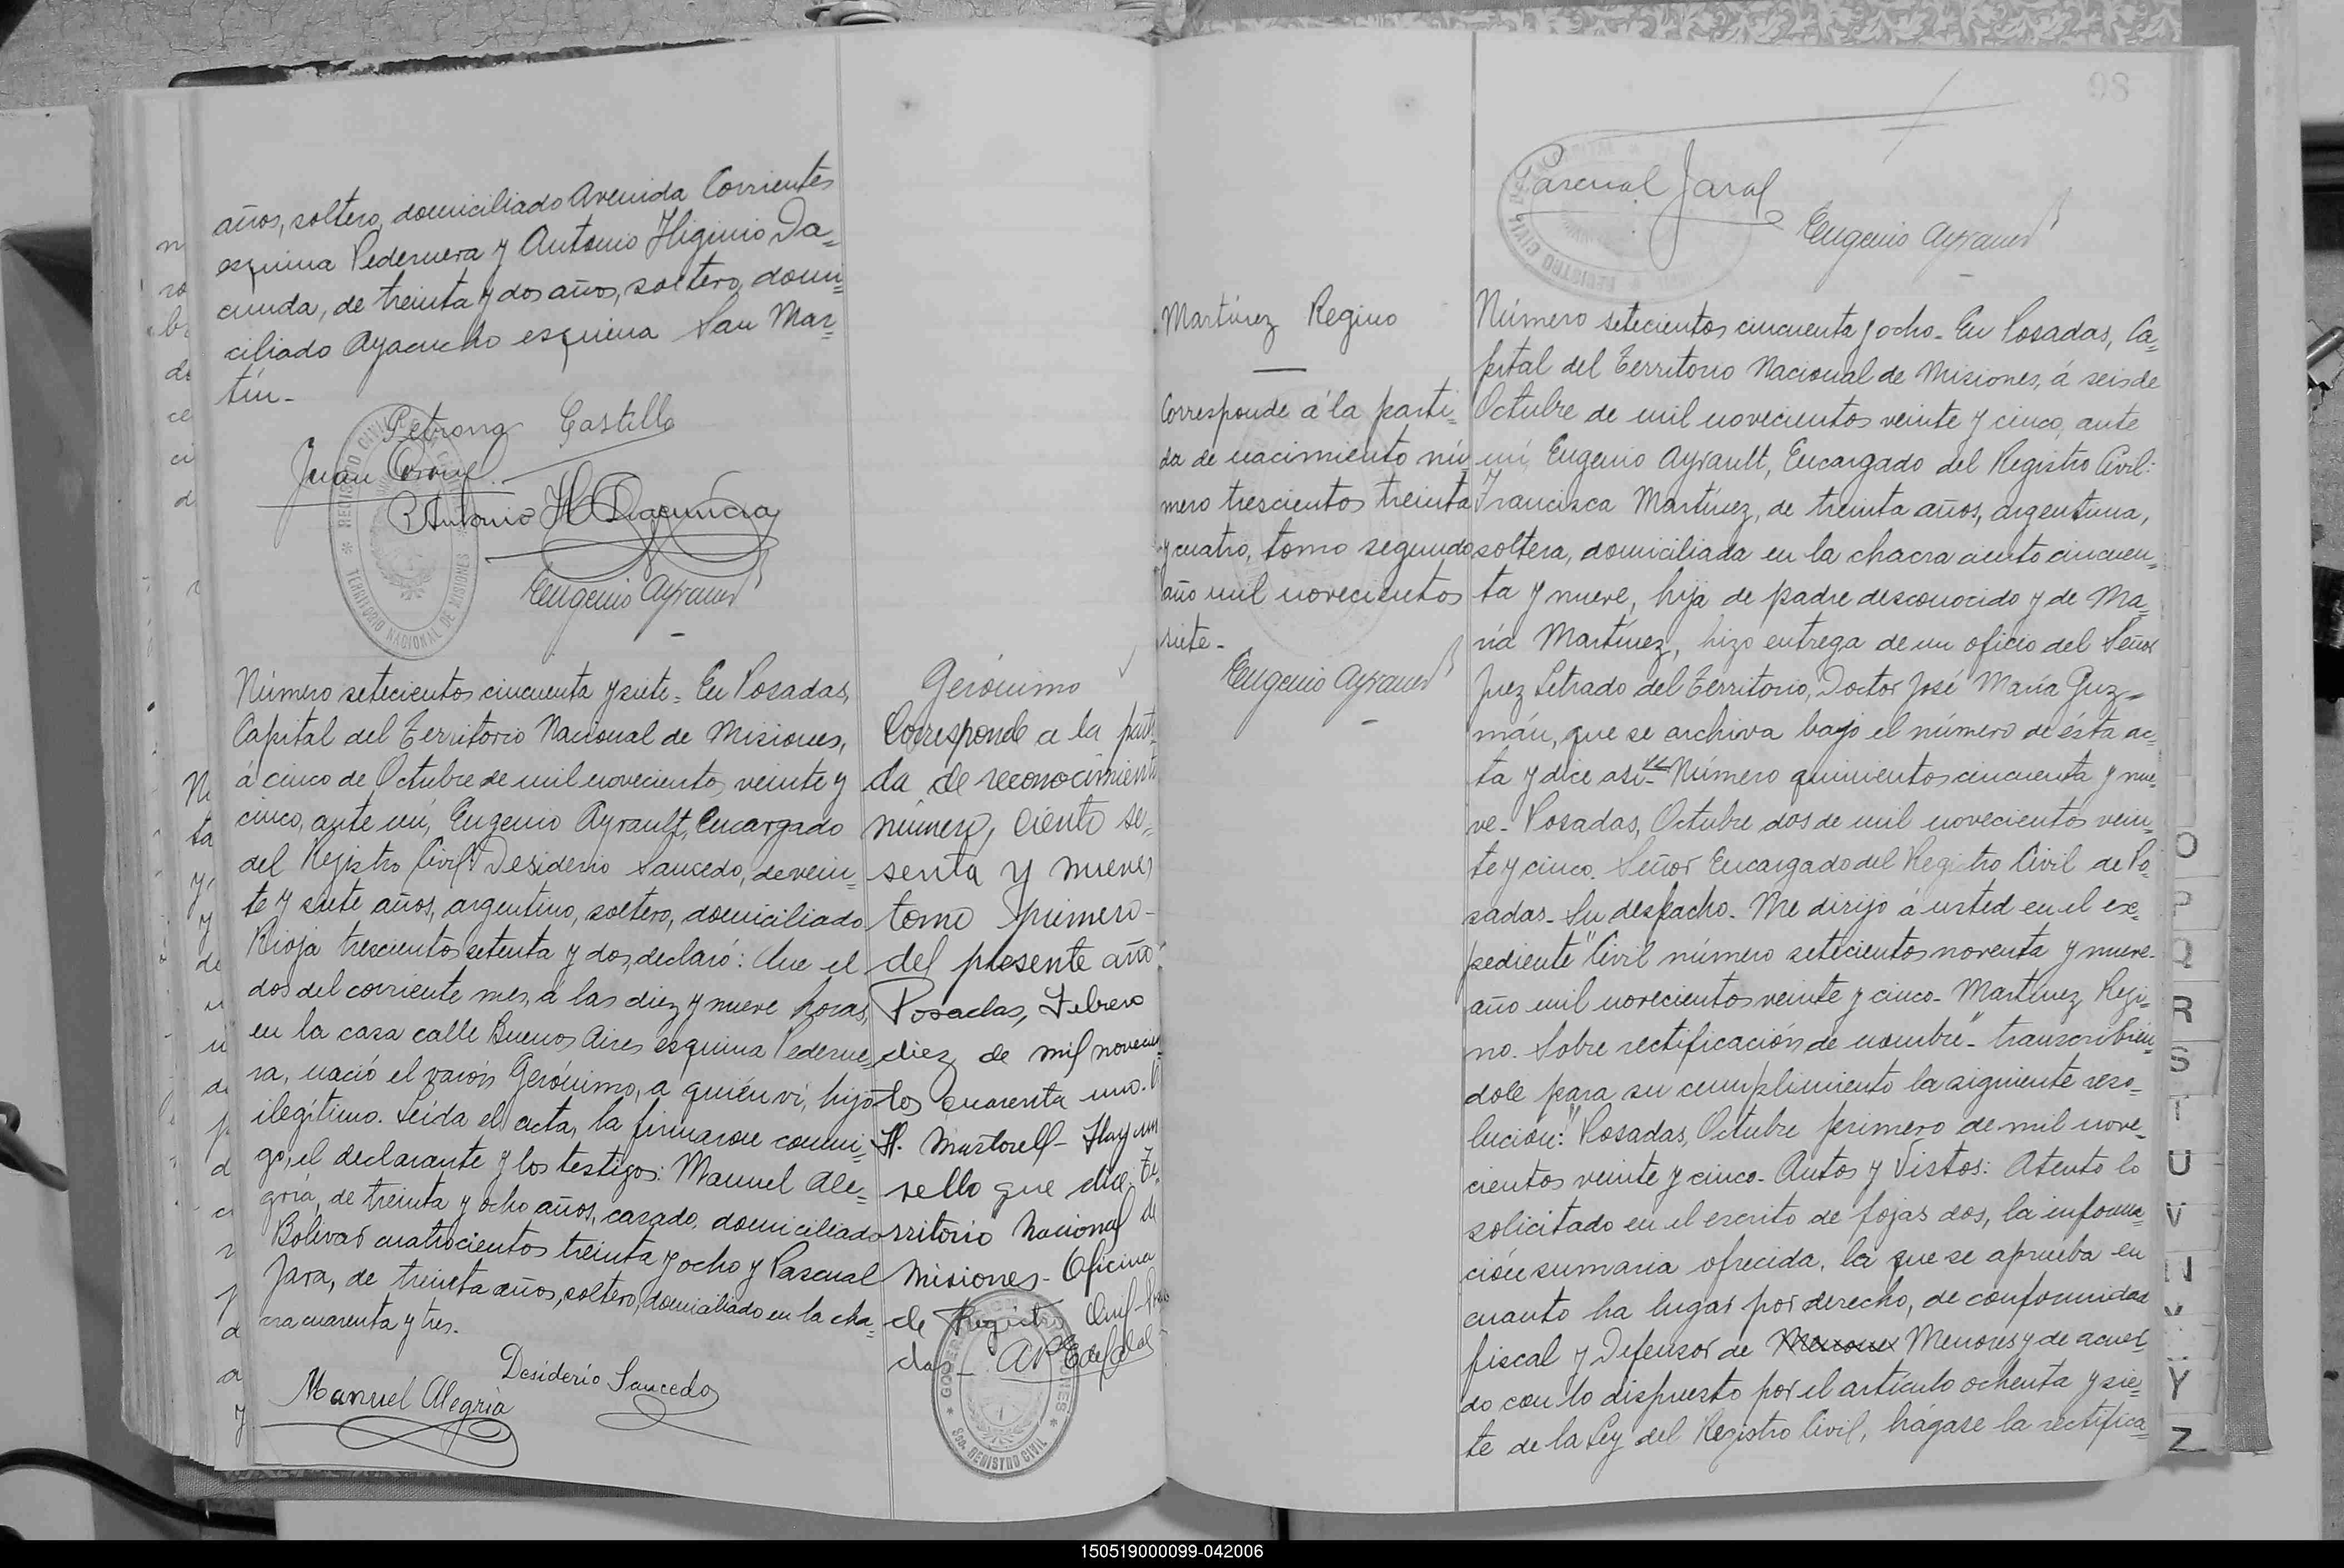 años, soltero, domiciliado Avenida Corrientes
esquina Pedernera y Antonio Higinio Da=
cunda, de treinta y dos años, soltero, domi=
ciliado Ayacucho esquina San Mar=
tín-
Petrona Castillo
Juan
Antonio H Dacunda
Eugenio Ayrault
REGISTRO CIVIL
TERRITORIO NACIONAL DE MISIONES
Número setecientos cincuenta y siete= En Posadas,
Capital del Territorio Nacional de Misiones,
á cinco de Octubre de mil novecientos veinte y
cinco, ante mí, Eugenio Ayrault, Encargado
del Registro Civil: Desiderio Saucedo, de vein=
te y siete años, argentino, soltero, domiciliado
Rioja trescientos setenta y dos, declaró: Que el
dos del corriente mes, á las diez y nueve horas,
en la casa calle Buenos Aires esquina Pederne=
ra, nació el varón Gerónimo, a quién ví, hijo
ilegítimo. Leída el acta, la firmaron conmi=
go, el declarante y los testigos: Manuel Ale=
gría, de treinta y ocho años, casado, domiciliado
Bolivar cuatrocientos treinta y ocho y Pascual
Jara, de treinta años, soltero, domiciliado en la cha=
cra cuarenta y tres.
Desiderio Saucedo
Manuel Alegria
Gerónimo
Corresponde a la parti
da de reconocimiento
número, ciento se=
senta y nueve
tomo primero-
del presente año
Posadas, Febrero
diez de mil novecien
tos cuarenta uno.
H. Martorell- Hay un
sello que dice. Te
rritorio Nacional de
Misiones- Oficina
de Registro Civil-
das-
REGISTRO CIVIL
98
Pascual Jara
Eugenio Ayrault
REGISTRO CIVIL
Martínez Regino
Corresponde á la parti-
da de nacimiento nú
mero trescientos treinta
y cuatro, tomo segundo
año mil novecientos
siete-
Eugenio Ayrault
Número setecientos cincuenta y ocho- En Posadas, Ca=
pital del Territorio Nacional de Misiones, á seis de
Octubre de mil novecientos veinte y cinco, ante
mí, Eugenio Ayrault, Encargado del Registro Civil:
Francisca Martínez, de treinta años, argentina,
soltera, domiciliada en la chacra ciento cincuen=
ta y nueve, hija de padre desconocido y de Ma=
ría Martínez, hizo entrega de un oficio del Señor
Juez Letrado del Territorio, Doctor José María Guz=
mán, que se archiva bajo el número de ésta ac=
ta y dice así-" Número quinientos cincuenta y nue
ve- Posadas, Octubre dos de mil novecientos vein=
te y cinco. Señor Encargado del Registro Civil de Po
sadas- Su despacho- Me dirijo á usted en el ex=
pediente "Civil número setecientos noventa y nueve-
año mil novecientos veinte y cinco- Martínez Regi=
no. Sobre rectificación de nombre"- transcribien=
dole para su cumplimiento la siguiente reso=
lución: "Posadas, Octubre primero de mil nove=
cientos veinte y cinco- Autos y Vistos: Atento lo
solicitado en el escrito de fojas dos, la informa=
ción sumaria ofrecida, la que se aprueba en
cuanto ha lugar por derecho, de conformidad
fiscal y Defensor de Menores y de acuer
do con lo dispuesto por el artículo ochenta y sie=
te de la Ley del Registro Civil, hágase la rectifica=
O
P
Q
R
S
T
U
V
Y
Z
150519000099-042006